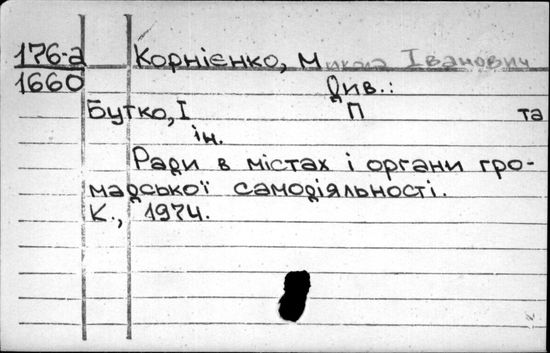 176-а Корнієнко, Микола Іванович
1660 Див.:
Бутко, І П та
ін.
Ради в містах і органи гро-
мадської самодіяльності.
К., 1974.